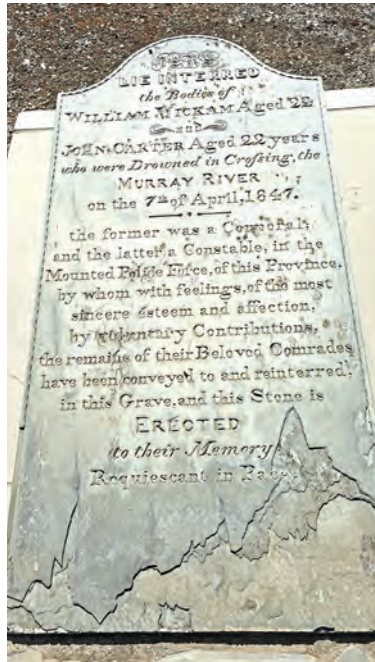 HERE
LIE INTERRED
the Bodies of
WILLIAM WICKAM Aged 22
and
JOHN CARTER Aged 22 years
who were Drowned in Crossing, the
MURRAY RIVER
on the 7th of April, 1847.
the former was a Corporal,
and the latter a Constable, in the
Mounted Police Force, of this Province,
by whom with feelings, of the most
sincere esteem and affection,
by voluntary Contributions,
the remains of their Beloved Comrades
have been conveyed to and reinterred,
in this Grave, and this Stone is
ERECTED
to their Memory
Requiescant in Pace